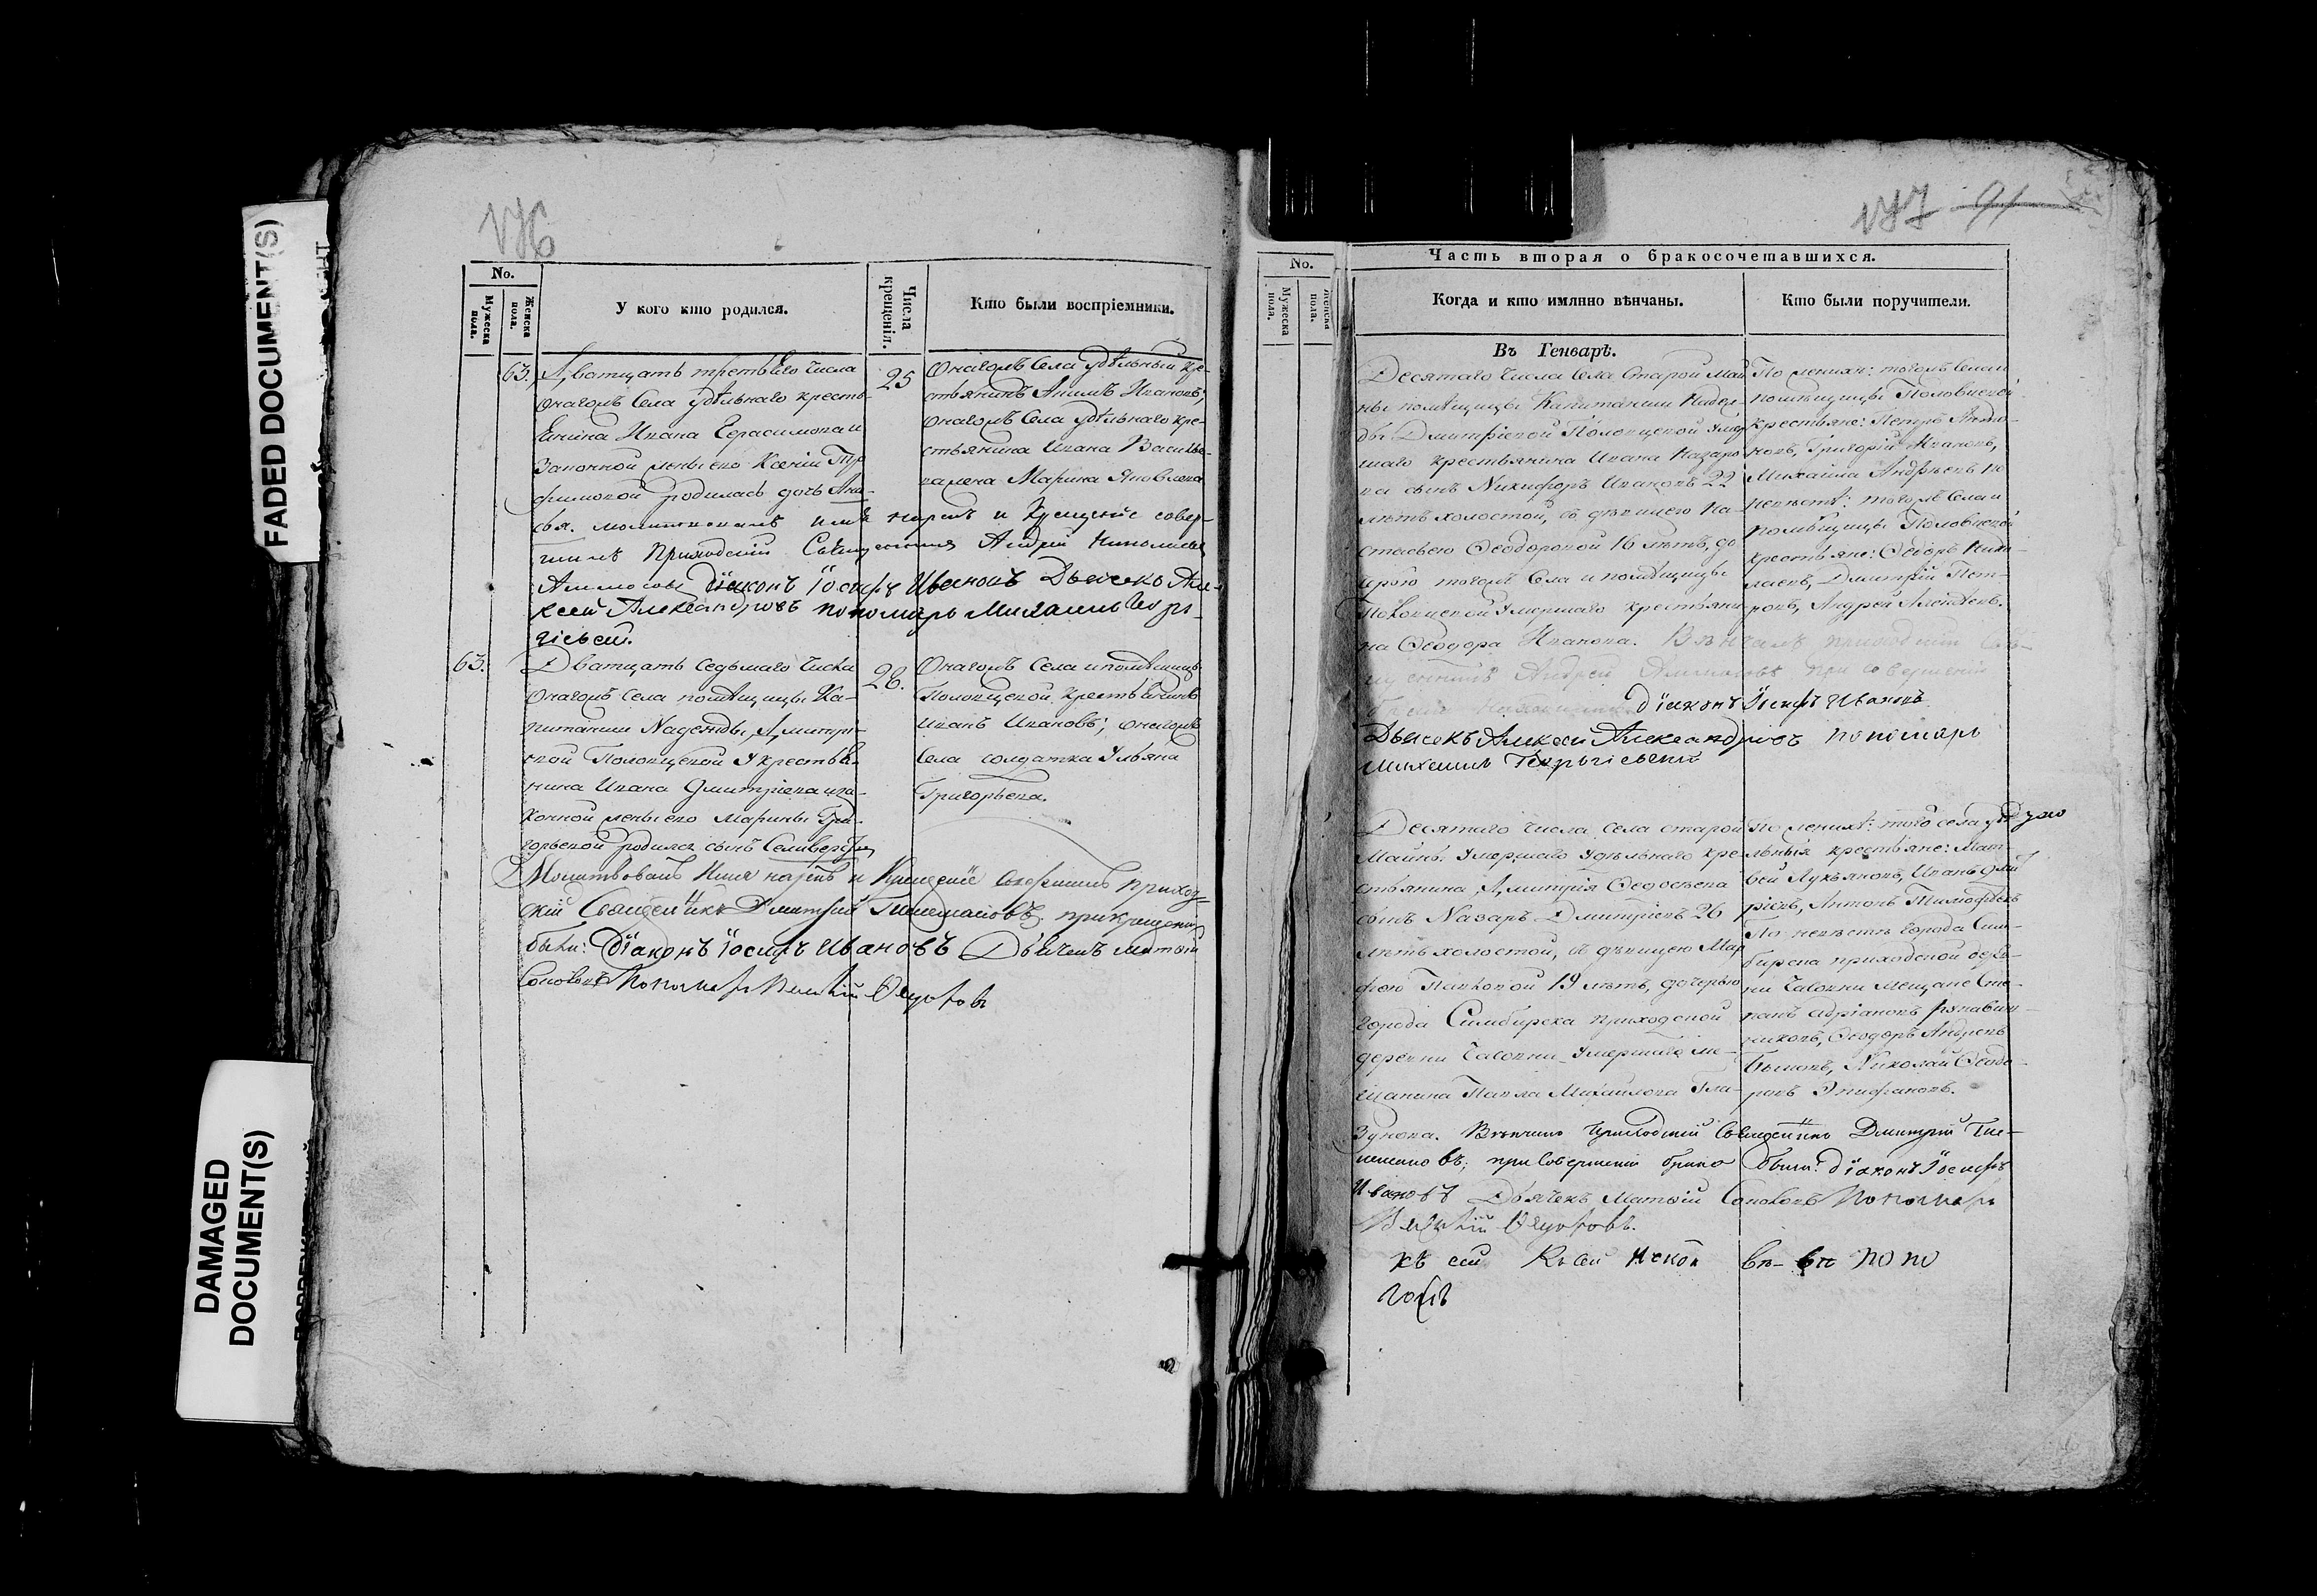 FADED DOCUMENT(S)
DAMAGED
DOCUMENT(S)
No.
Мужеска пола.
Женска пола.
У кого кто родился.
Числа крещенія.
Кто были воспріемники.
63.
Дватцать третьяго числа
Онагожъ Села удѣльнаго кресть-
янина Ивана Герасимова и
Законной жены его Ксеніи Тро-
фимовой родилась дочь
молитвовалъ имя нарекъ и Крещеніе совер-
шилъ Приходскій Священникъ Андрей
діаконъ Іосифъ Ивановъ Дьячекъ Але-
ксей Александровъ пономарь Михаилъ Геор-
гіевскій.
25
Онагожъ Села удѣльный кре-
стьянинъ Акимъ Ивановъ;
онагожъ Села удѣльнаго кре-
стьянина Ивана Василье-
ва жена Марина Яковлева
63.
Дватцать седьмаго числа
Онагожъ Села помѣщицы Ка-
питанши Надежды Дмитрі-
евой Половцевой у крестья-
нина Ивана Дмитріева и за-
конной жены его Марины Гри-
горьевой родился сынъ Селиверстъ
Молитвовалъ Имя нарекъ и Крещеніе Совершилъ приход-
скій Священникъ Дмитрій при крещеніи
были: діаконъ Іосифъ Ивановъ Дьячекъ Матвѣй
Соколовъ Пономарь
28.
Онагожъ Села и помѣщицы
Половцевой крестьянинъ
Иванъ Ивановъ; онагожъ
Села солдатка Ульяна
Григорьева.
No.
Мужеска пола.
Женска пола.
Часть вторая о бракосочетавшихся.
Когда и кто имянно вѣнчаны.
Кто были поручители.
Въ Генварѣ.
Десятаго числа Села Старой Май-
ны помѣщицы Капитанши Надеж-
ды Дмитріевой Половцевой умер-
шаго крестьянина Ивана Назаро-
ва сынъ Никифоръ Ивановъ 22
лѣтъ холостой, съ дѣвицею На-
стасьею Ѳеодоровой 16 лѣтъ, до-
черью тогожъ Села и помѣщицы
Половцевой умершаго крестьяни-
на Ѳеодора Иванова. Вѣнчалъ приходскій Свя-
щенникъ Андрей при совершеніи
діаконъ Іосифъ Ивановъ
Дьячекъ Алексей Александровъ пономарь
Михаилъ Георгіевскій
По женихѣ: тогожъ Села и
помѣщицы Половцевой
крестьяне: Петръ Анто-
новъ, Григорій Ивановъ,
Михайла Андрѣевъ по
невѣстѣ: тогожъ Села и
помѣщицы Половцевой
крестьяне: Ѳедоръ Нико-
лаевъ, Дмитрій Пет-
ровъ, Андрей Алексѣевъ.
Десятаго числа села старой
Майны умершаго удѣльнаго кре-
стьянина Дмитрія Ѳедосѣева
сынъ Назаръ Дмитріевъ 26
лѣтъ холостой, съ дѣвицею Мар-
фою Павловой 19 лѣтъ, дочерью
города Симбирска приходской
деревни Часовни умершаго ме-
щанина Павла Михайлова Гла-
зунова. Вѣнчалъ приходскій Священникъ Дмитрій
при Совершеніи брака были: діаконъ Іосифъ
Ивановъ Дьячекъ Матвѣй Соколовъ Пономарь
По женихѣ: того села удѣ-
льныя крестьяне: Мат-
вей Лукьяновъ, Иванъ Дмит-
ріевъ, Антонъ Тимофѣевъ
По невѣстѣ города Сим-
бирска приходской дерев-
ни Часовни Мещане Сте-
панъ Адріановъ Рукавиш-
никовъ, Ѳеодоръ Андреевъ
Николай Ѳеодо-
ровъ Эпифановъ.